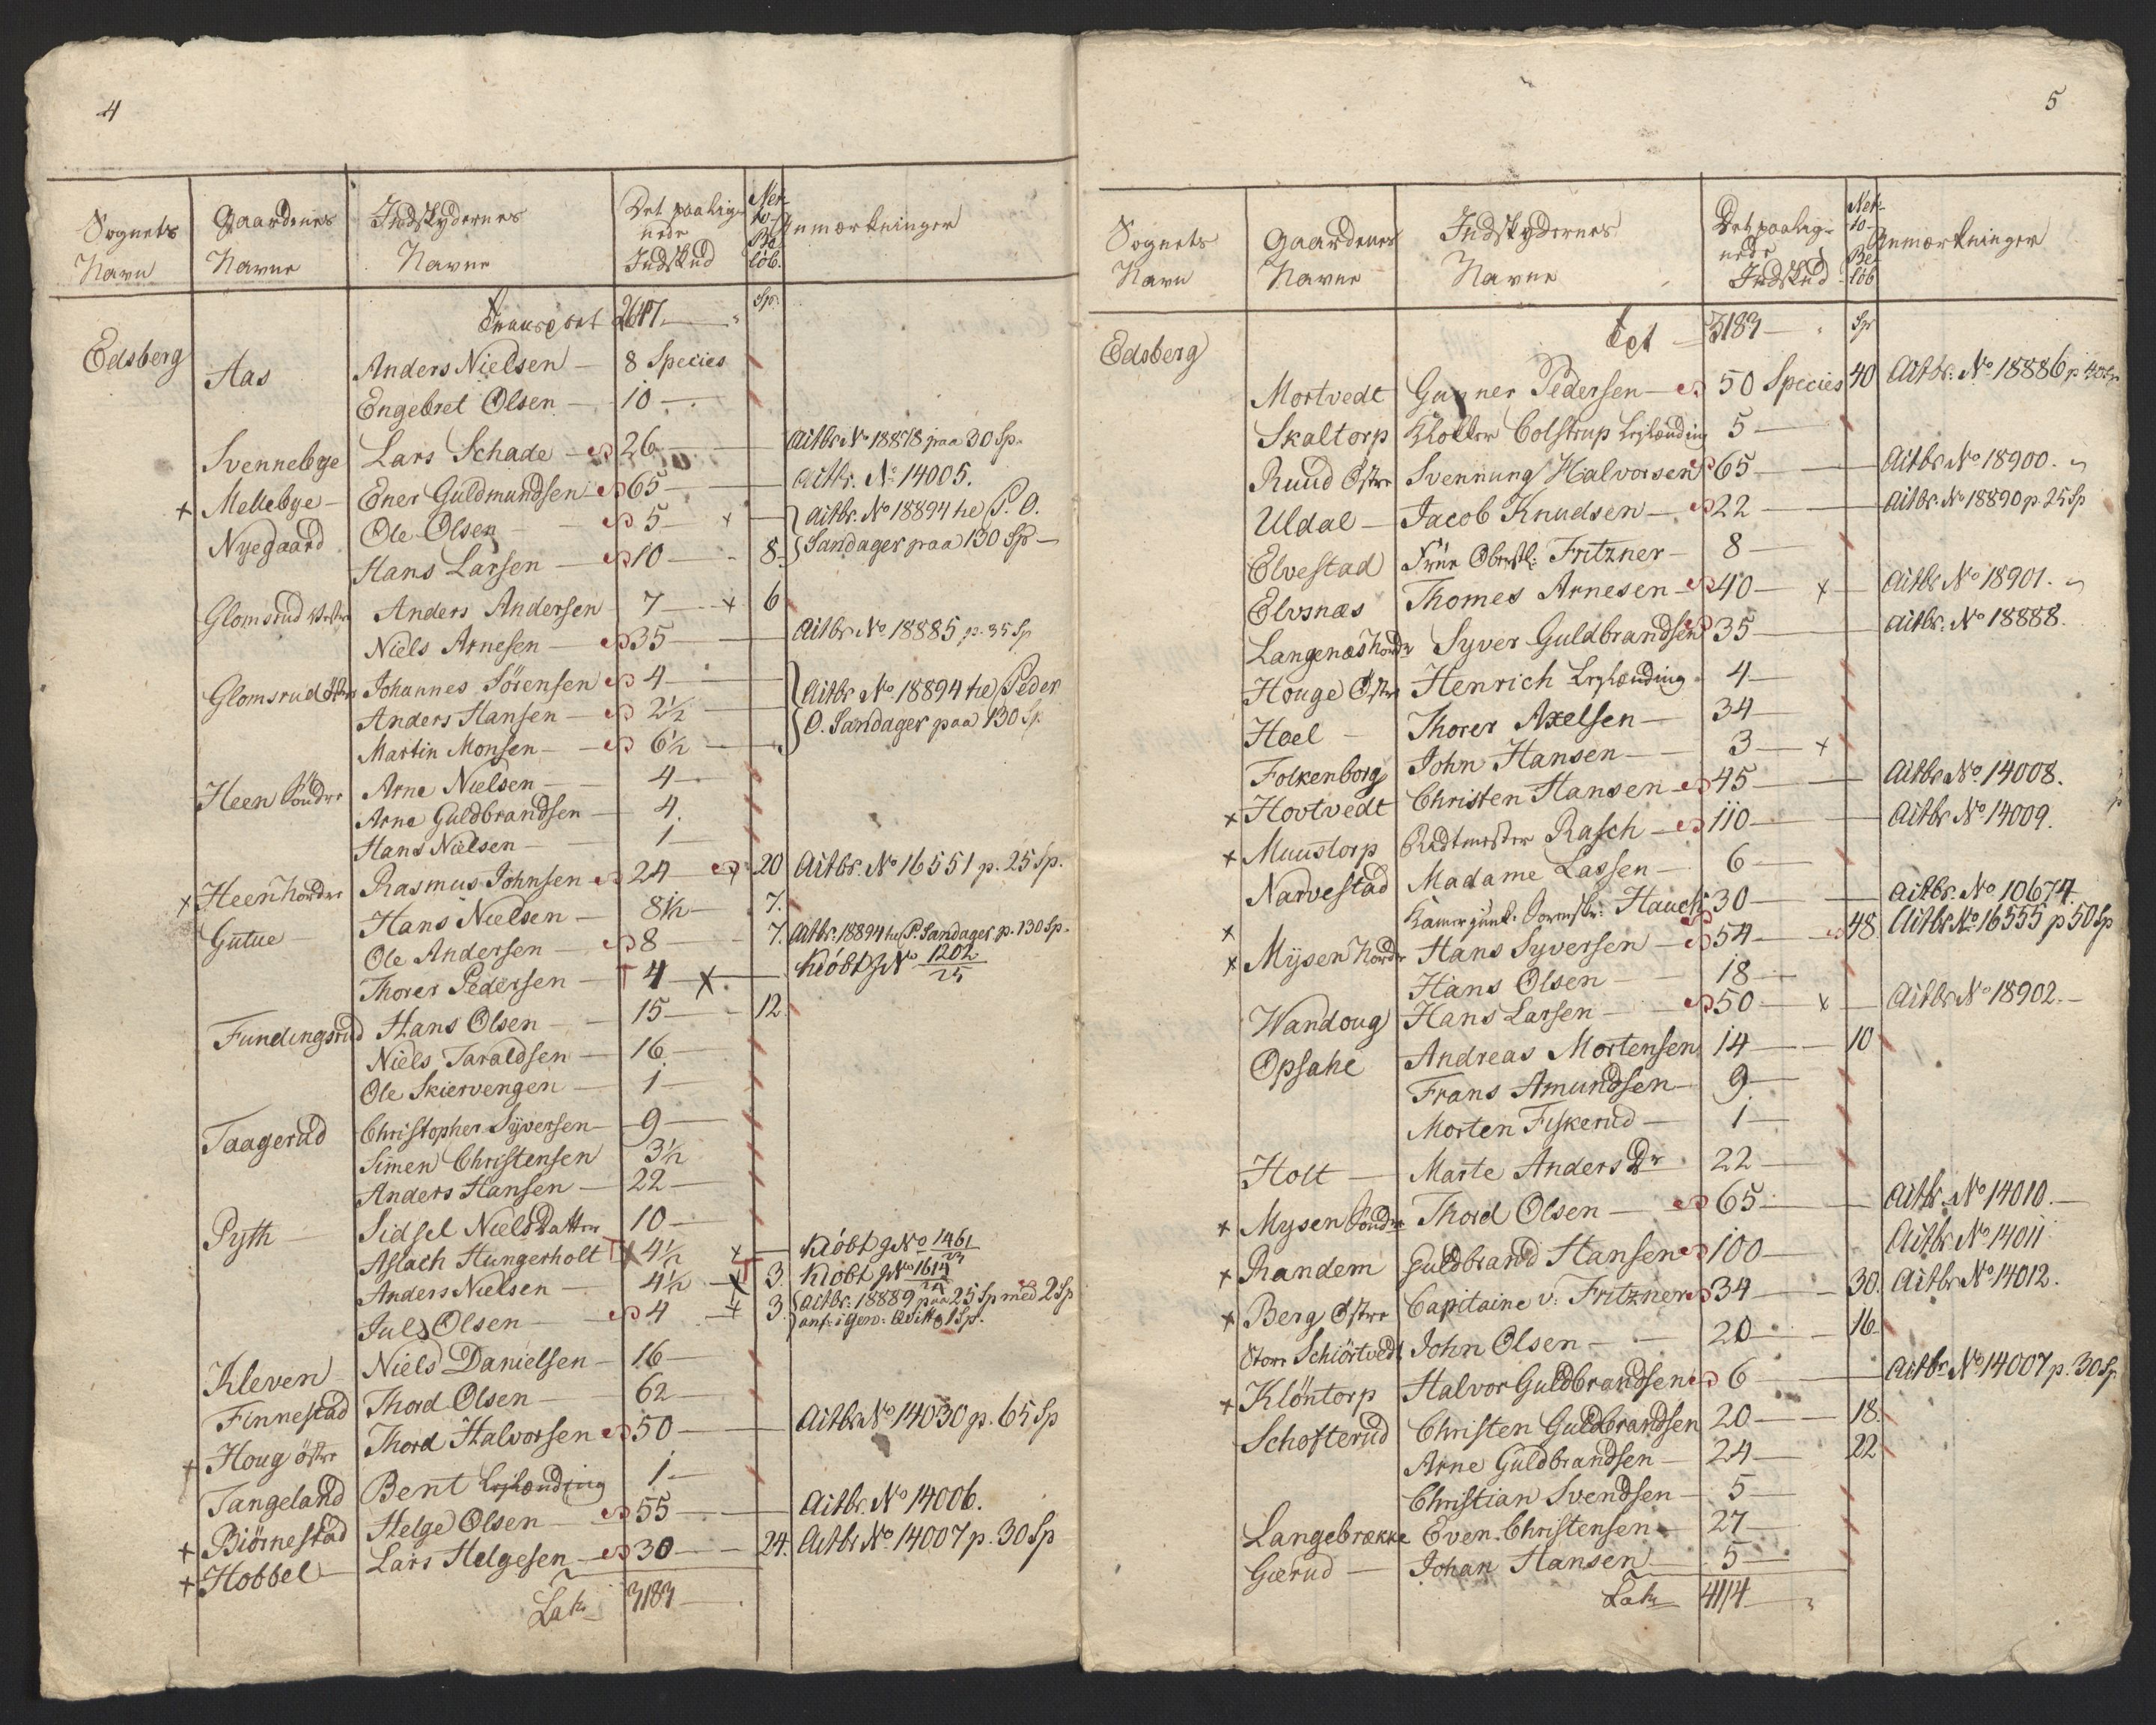 4
Sognets Navn | Gaardenes Navne | Indskydernes Navne | Det paalignede Indskud | Netto-Beløb. | Anmærkninger
Transport 2647 — Sp.
Edsberg Aas Anders Nielsen — 8 Species
Engebret Olsen — 10 —
Svennebye Lars Schade — 26 — Aitbr. No 18878 paa 30 Sp.
+ Mellebye — Ener Guldmundsen 65 — Aitbr. No 14005.
Nyegaard Ole Olsen — 5 — + — Aitbr. No 18894 he P. O.
Hans Larsen — 10 — 8. Sandager paa 130 Sp —
Glomsrud Vestre Anders Andersen 7 — + 6
Niels Arnesen — 35 — Aitbr No 18885 p. 35 Sp
Glomsrud östre Johannes Sörensen 4 — Aitbr No. 18894 he Peder
Anders Hansen — 2½ — O. Sandager paa 130 Sp
Martin Monsen — 6½ —
Heen Söndre Arne Nielsen — 4 —
Arne Guldbrandsen — 4.
Hans Nielsen — 1 —
+ Heen Nordre Rasmus Johnsen 24 — 20 Aitbr. No 16551 p. 25 Sp.
Gutue Hans Nielsen — 8½ — 7.
Ole Andersen — 8 — 7. Aitbr. 18894 he P. Sandager p. 130 Sp.
Thorer Pedersen — 4 — x — Kiöbt J No 1202/25
Fundingsrud Hans Olsen — 15 — 12.
Niels Taraldsen — 16 —
Ole Skiervengen — 1 —
Taagerud Christopher Syversen — 9 —
Simen Christensen 3½
Anders Hansen — 22 —
Pyth — Sidsel Nielsdatter 10 —
Aslach Hungerholt 4½ x — Kiöbt J No 1461/23
Anders Nielsen — 4½ — x 3. Kiöbt J No 1614
Juls Olsen — 4 — + 3. Aitbr: 18889 paa 25 Sp med 2 Sp
1 Sp.
Kleven — Niels Danielsen — 16 —
Finnestad Thord Olsen — 62 —
+ Houg östre Thord Halvorsen 50 — Aitbr No 14030 p. 65 Sp
Tangeland Bent Leylænding 1 —
+ Biörnestad Helge Olsen — 55 — Aitbr. No 14006.
+ Hobbel — Lars Helgesen — 30 — 24. Aitbr. No 14007 p. 30 Sp
Lats 3183 —
5
Sognets Navn | Gaardenes Navne | Indskydernes Navne | Det paalignede Indskud | Netto-Beløb | Anmærkninger
3183 — Sp
Edsberg
Mortvedt Gunner Pedersen — 50 Species 40 Aitbr. No 18886 p 40 Sp
Skaltorp Colstrup Leylænding 5 —
Ruud Östre Svennung Halvorsen 65 — Aitbr No 18900.
Uldal — Jacob Knudsen — 22 — Aitbr. No 18890 p. 25 Sp
Elvestad Frue Oberstl: Fritzner — 8 —
Elvsnæs Thomes Arnesen — 40 — x — Aitbr No 18901.
Langenæs Nordr Syver Guldbrandsen 35 — Aitbr. No 18888.
Houge Östre Henrich Leylænding 4 —
Hoel — Thorer Axelsen — 34 —
Folkenborg John Hansen — 3 — x
+ Hovtvedt Christen Hansen 45 — Aitbr No. 14008.
+ Muustorp Ridtmester Rasch — 110 — Aitbr No 14009.
Narvestad Madame Lassen — 6 —
+ Kamerjunk. Hauch 30 — Aitbr. No 10674.
+ Mysen Nordr Hans Syversen — 54 — 48 Aitbr No 16555 p 50 Sp
Hans Olsen — 18 —
Wandoug Hans Larsen — 50 — x — Aitbr No 18902. —
Opsahe Andreas Mortensen 14 — 10
Frans Amundsen — 9 —
Morten Fiskerud — 1 —
Holt — Marte Anders Dr 22 —
+ Mysen Söndre Thord Olsen — 65 — Aitbr. No 14010. —
+ Randem Guldbrand Hansen 100 — Aitbr No 14011
+ Berg Östre Capitaine v. Fritzner 34 — 30. Aitbr No 14012.
Store Schiörtvedt John Olsen — 20 — 16 —
+ Klöntorp Halvor Guldbrandsen 6 — Aitbr No 14007 p. 30 Sp
Schofterud Christen Guldbrandsen 20 — 18.
Arne Guldbrandsen — 24 — 22
Christian Svendsen — 5 —
Langebrække Even Christensen — 27 —
Gærud — Johan Hansen — 5 —
Lats 4114 —